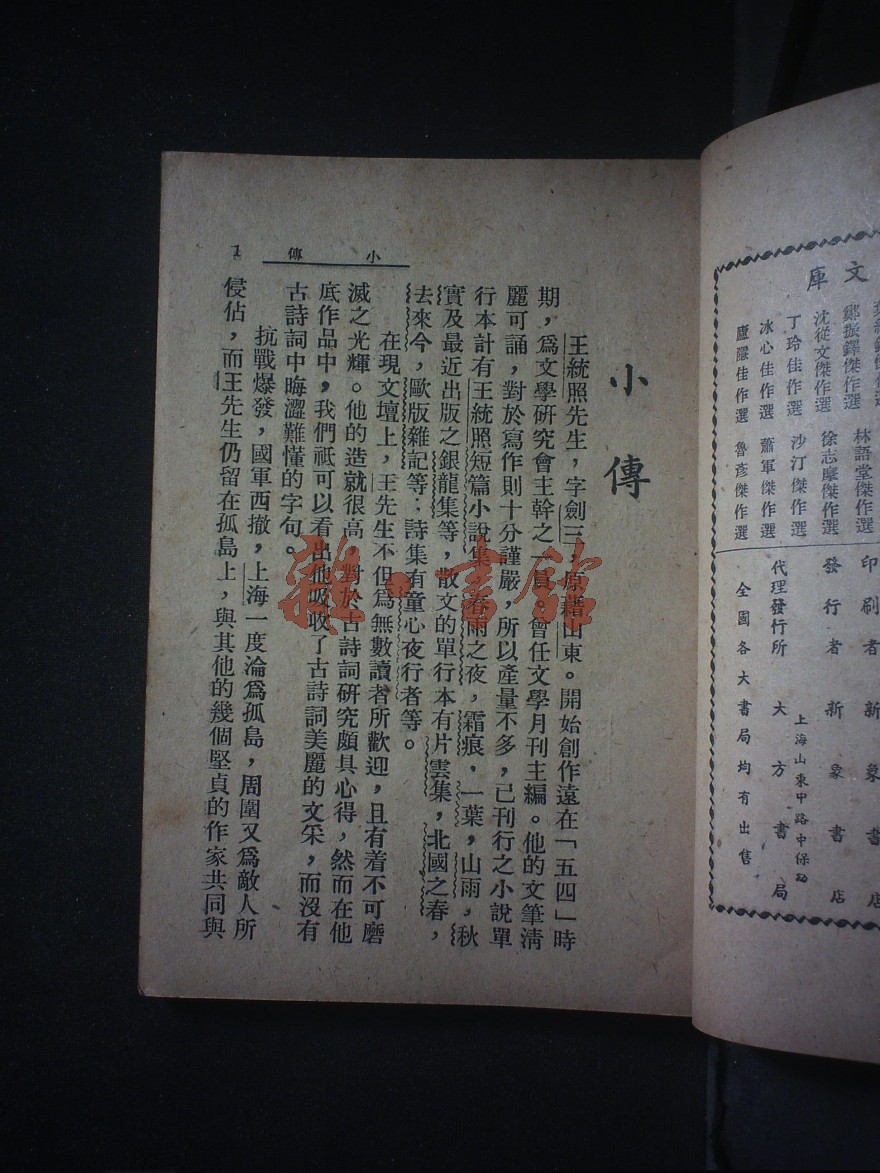 文庫
鄭振鐸傑作選
沈從文傑作選
丁玲佳作選
冰心佳作選
廬隱佳作選
林語堂傑作選
徐志摩傑作選
沙汀傑作選
蕭軍傑作選
魯彥傑作選
印刷者 新象書店
發行者 新象書店
上海山東中路中保坊
代理發行所 大方書局
全國各大書局均有出售
小傳
王統照先生，字劍三，原籍山東。開始創作遠在「五四」時
期，爲文學研究會主幹之一員。曾任文學月刊主編。他的文筆淸
麗可誦，對於寫作則十分謹嚴，所以產量不多，已刊行之小說單
行本計有王統照短篇小說集，春雨之夜，霜痕，一葉，山雨，秋
實及最近出版之銀龍集等，散文的單行本有片雲集，北國之春，
去來今，歐版雜記等；詩集有童心夜行者等。
在現文壇上，王先生不但爲無數讀者所歡迎，且有着不可磨
滅之光輝。他的造就很高，對於古詩詞研究頗具心得，然而在他
底作品中，我們祇可以看出他吸收了古詩詞美麗的文采，而沒有
古詩詞中晦澀難懂的字句。
抗戰爆發，國軍西撤，上海一度淪爲孤島，周圍又爲敵人所
侵佔，而王先生仍留在孤島上，與其他的幾個堅貞的作家共同與
小傳
1
雜·書館